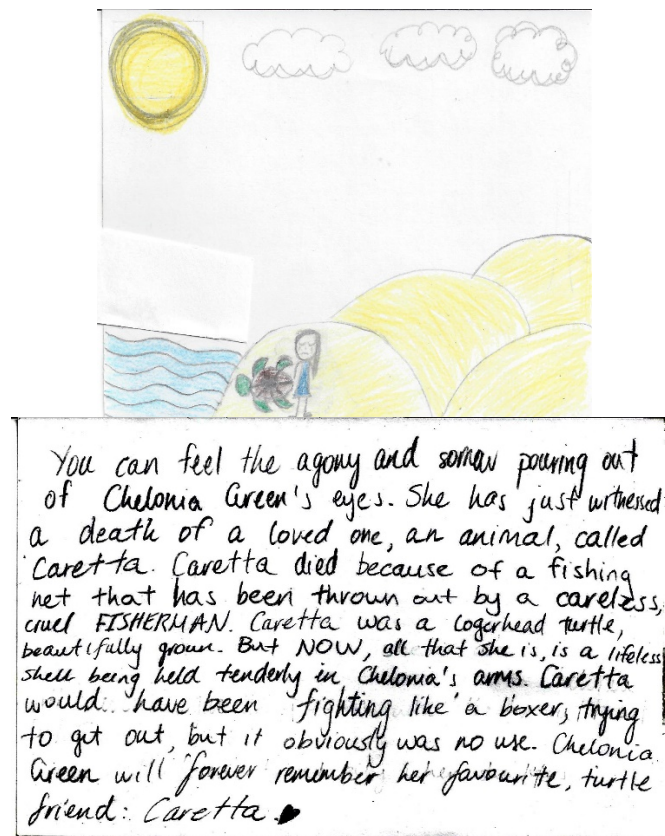 You can feel the agony and sorrow pouring out
of Chelonia Green's eyes. She has just witnessed
a death of a loved one, an animal, called
Caretta. Caretta died because of a fishing
net that has been thrown out by a careless,
cruel FISHERMAN. Caretta was a logerhead turtle,
beautifully grown. But NOW, all that she is, is a lifeless
shell being held tenderly in Chelonia's arms. Caretta
would have been fighting like a boxer, trying
to get out, but it obviously was no use. Chelonia
Green will forever remember her favourite, turtle
friend: Caretta ♥